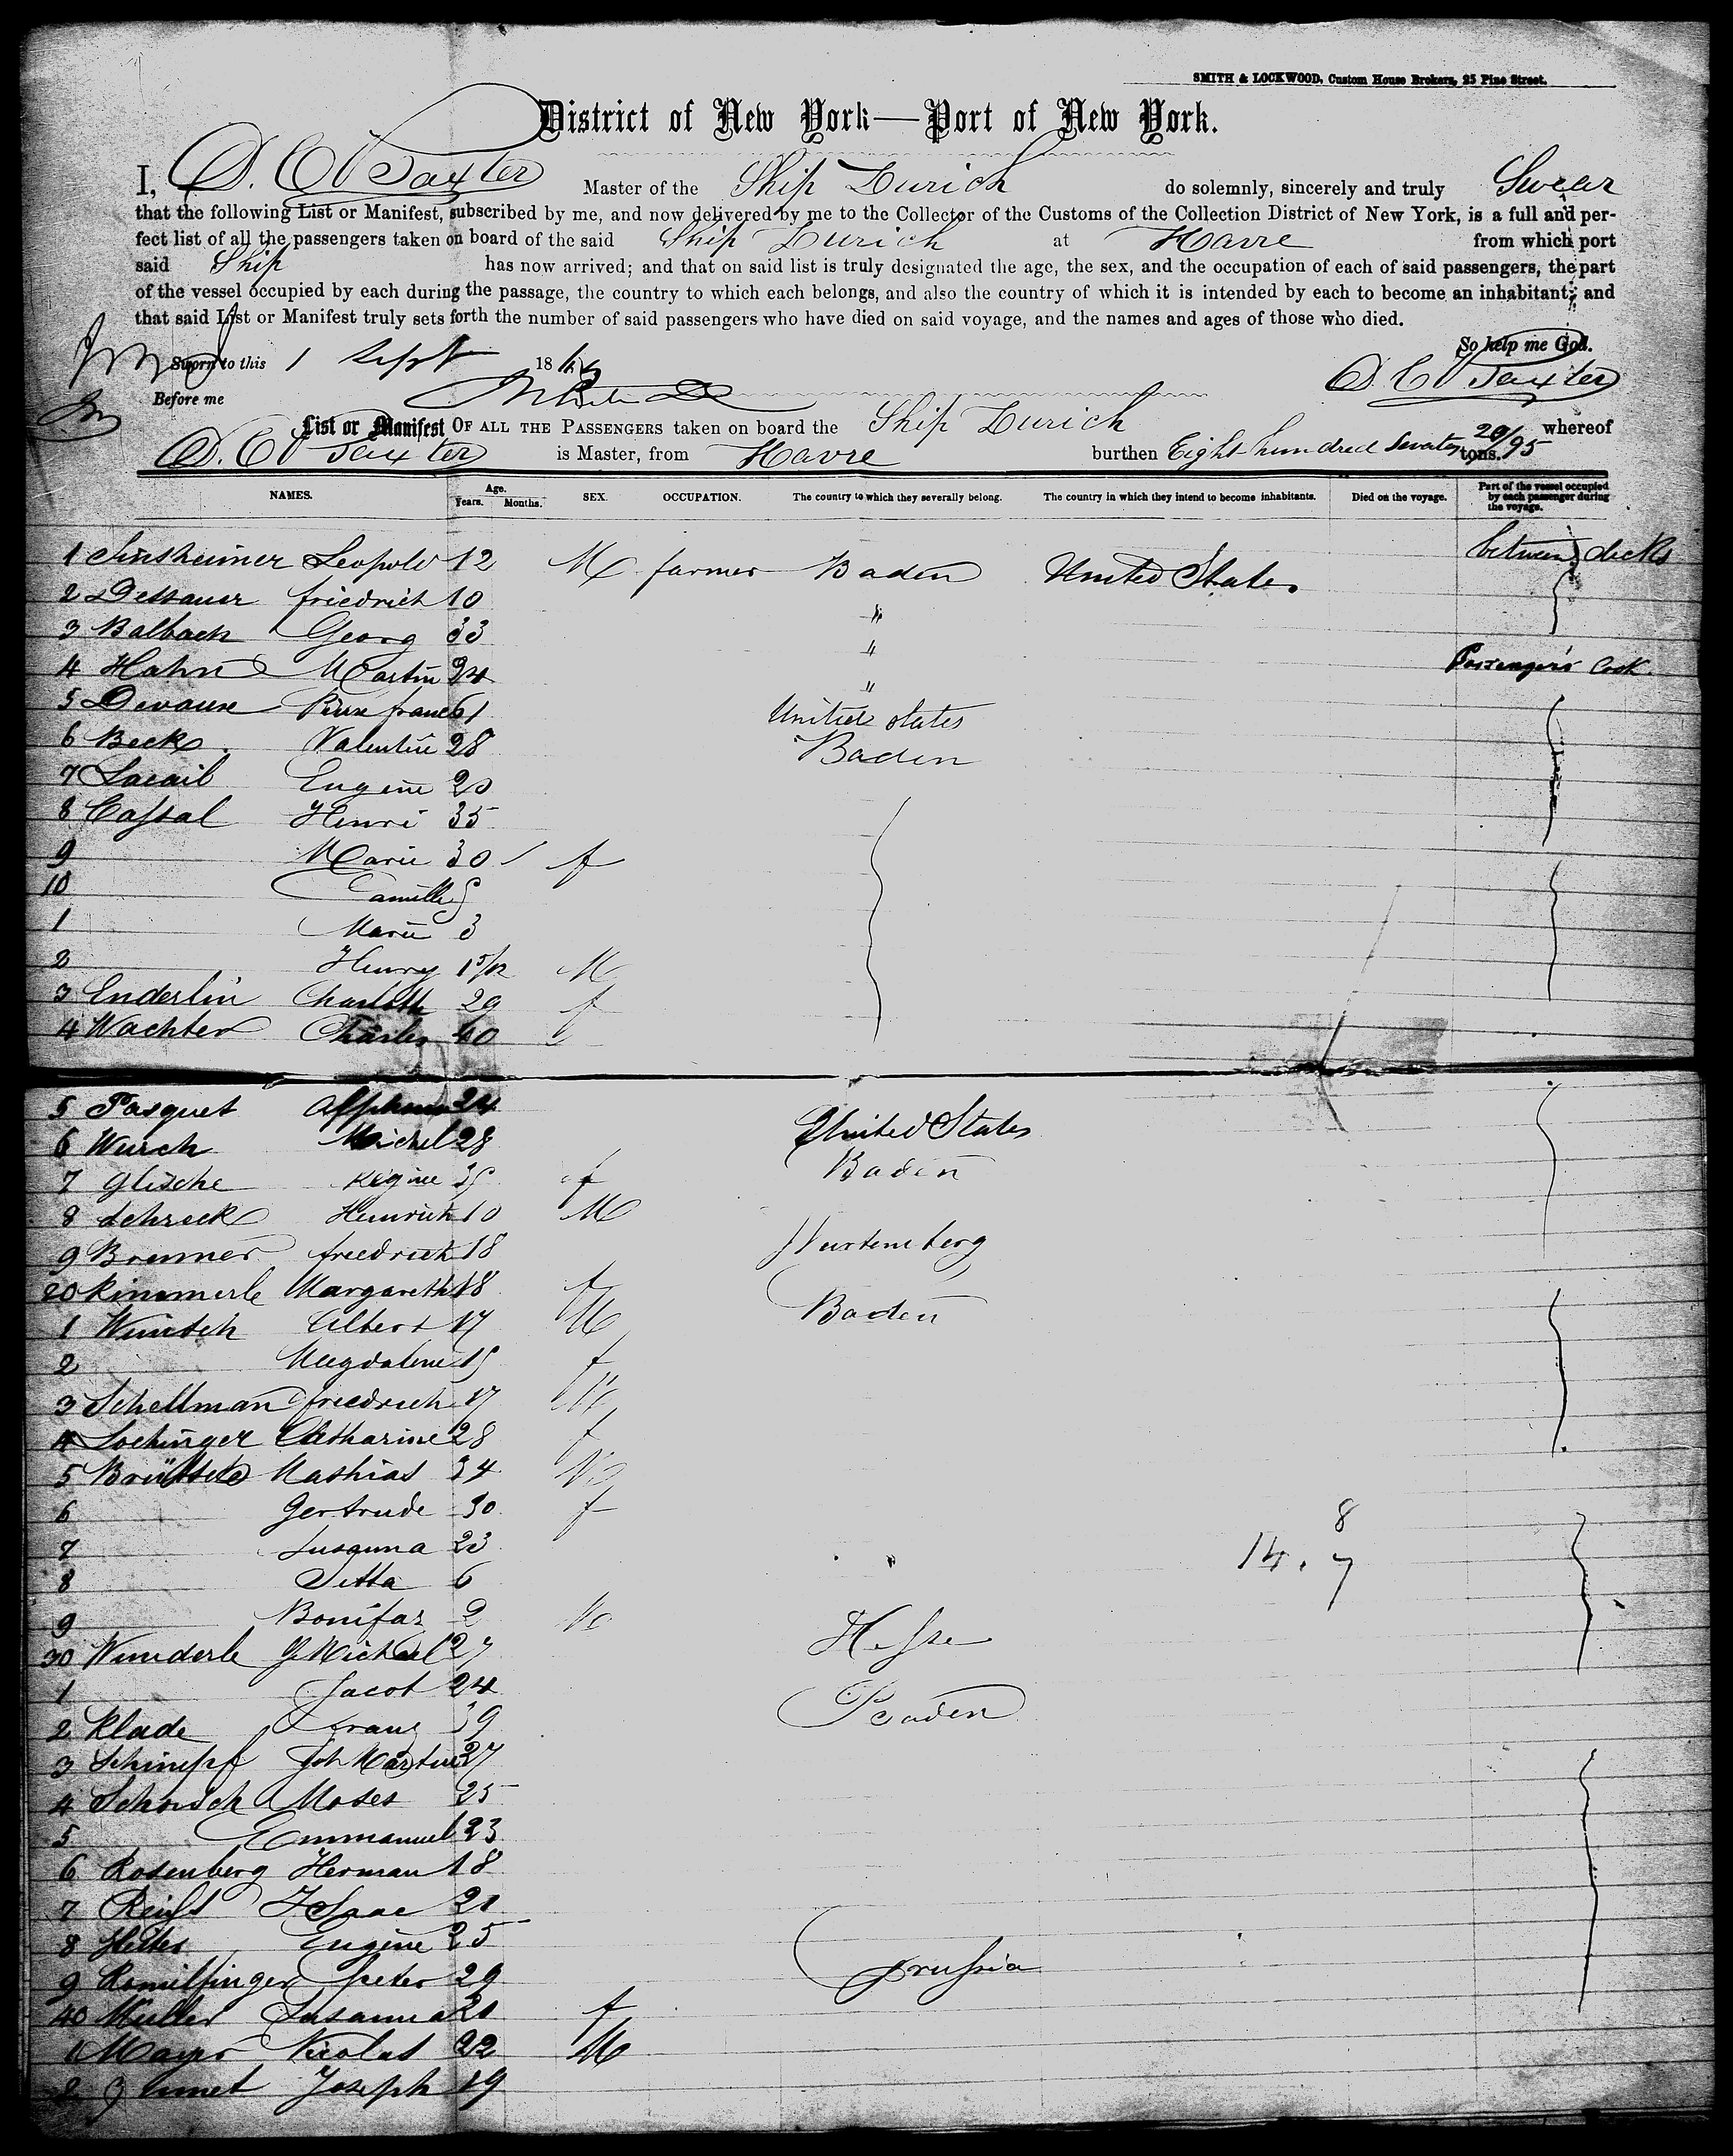 SMITH & LOCKWOOD, Custom House Brokers, 25 Pine Street.
District of New York—Port of New York.
I, D. C. Baxter Master of the Ship Zurich do solemnly, sincerely and truly Swear
that the following List or Manifest, subscribed by me, and now delivered by me to the Collector of the Customs of the Collection District of New York, is a full and per-
fect list of all the passengers taken on board of the said Ship Zurich at Havre from which port
said Ship has now arrived; and that on said list is truly designated the age, the sex, and the occupation of each of said passengers, the part
of the vessel occupied by each during the passage, the country to which each belongs, and also the country of which it is intended by each to become an inhabitant; and
that said List or Manifest truly sets forth the number of said passengers who have died on said voyage, and the names and ages of those who died.
So help me God.
Sworn to this 1 Sept 186
D. C. Baxter
Before me
List or Manifest OF ALL THE PASSENGERS taken on board the Ship Zurich whereof
D. C. Baxter is Master, from Havre burthen Eight hundred Seventy 20/95 tons.
NAMES. Age. Years. Months. SEX. OCCUPATION. The country to which they severally belong. The country in which they intend to become inhabitants. Died on the voyage. Part of the vessel occupied by each passenger during the voyage.
1 Sinsheimer Leopold 12 M farmer Baden United States between decks
2 Dessauer friedrich 10 "
3 Balbach Georg 33 "
4 Hahn Martin 24 " Passengers Cook.
5 Devaux franc 61 United states
6 Beck Valentin 28 Baden
7 Lacail Eugene 20
8 Cassal Henri 35
9 Marie 30 f
10 Camille 5
1 Marie 3
2 Henry 1 5/12 M
3 Enderlin Charlotte 29 f
4 Wachter Charles 40
5 Pasquet Alphonse 24 United States
6 Wurch Michel 28 Baden
7 Glische Regine 35 f
8 Schreck Heinrich 10 M
9 Brenner friedrich 18 Wurtemberg
20 Kimmerle Margareth 18 f
1 Wunsch Albert 17 M Baden
2 Magdalene 15 f
3 Schellman friedrich 17 M
4 Lochinger Catharine 28 f
5 Mathias 34 M
6 Gertrude 30 f
7 Susanna 23
8 6
9 Bonifaz 2 M Hesse
8
14. 7
30 Wunderle G Michael 27
1 Jacob 24 Baden
2 Klade Franz 39
3 Schimpf Joh Martin 27
4 Schorsch Moses 25
5 Emmanuel 23
6 Rosenberg Herman 18
7 Reiss Isaac 21
8 Eugene 25
9 Romilfinger Peter 29 Prussia
40 Muller Susanna 21 f
1 Mayer Nicolas 22 M
2 Joseph 19